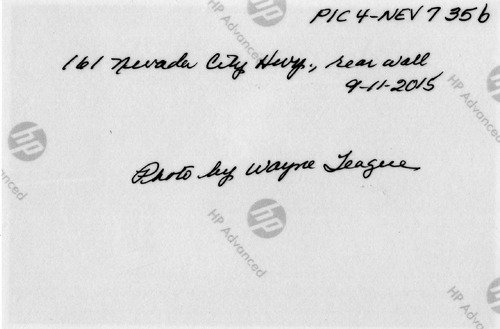 PIC 4-NEV 7 35b
161 Nevada City Hwy., rear wall
9-11-2015
Photo by Wayne Teague
hp
HP Advanced
hp
HP Advanced
hp
HP Advanced
hp
HP Advanced
hp